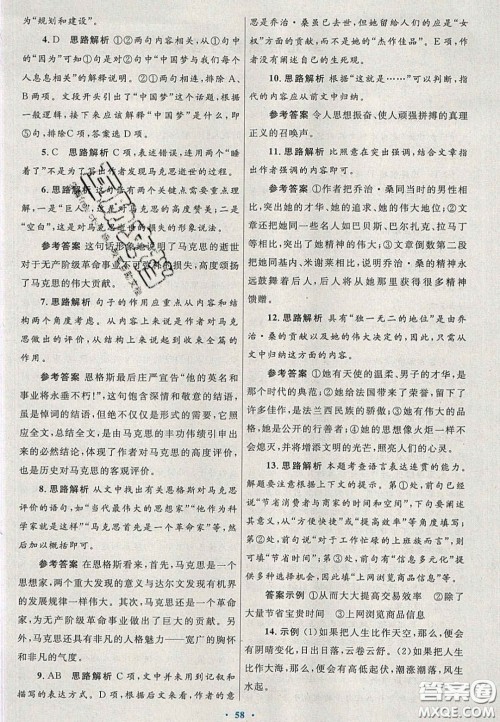 为“规划和建设”。
4. D 思路解析 ①②两句内容相关,从①句中
的“因为”可知①句应是②句后“中国梦与我们每个
人息息相关”的解释说明。①②两句相连,排除 A、
B两项。文段开头引出了“中国梦”这一话题,根据
一般逻辑,接下来应该解释“中国梦”是什么,即
⑤句,排除 C项,答案选 D项。
5. C 思路解析 C项,表述错误,还有一个“睡
着了”不是写马克思逝世的过程。
6. 思路解析 句子有两个关键点需要重点理
解,一是“巨人”,是对马克思的高度赞美;二是
“空白”,这是对马克思逝世的损失的形象说法。
参考答案 这句话形象地说明了马克思的逝世
对于无产阶级革命事业不可弥补的损失,高度评价
了马克思的伟大贡献。
7. 思路解析 句子的作用应重点从内容和结构
两个角度考虑。从内容上来说,作者对马克思
做出了高度的评价,从结构上来说起到总结全文的
作用。
参考答案 恩格斯最后庄严宣告“他的英名和
事业将永垂不朽!”饱含深情和敬意的结语,既
是悼词的结语,也是作者对马克思的高度评价,照
应全文,总结全文,由马克思的丰功伟绩引申出来
的必然结论,体现了作者对马克思的高度评价,
也是历史对马克思的客观评价。
8. 思路解析 从文中找出有关恩格斯对马克思
评价的语句,如“当代最伟大的思想家”“他作为科
学家就是这样”“马克思首先是一个革命家”等,分
析概括即可。
参考答案 在恩格斯看来,马克思是一个
思想家,两个重大发现的意义与达尔文发现有机世
界的发展规律一样伟大。此外,马克思还是一个革
命家,为无产阶级革命事业做出了巨大的贡献。另
外,马克思还具有非凡的人格魅力——宽广的胸怀
和非凡的气度。
9. AB 思路解析 本文中并未用到记叙和
描写的表达方式。D项,作者在第一段的意
思是乔治·桑虽已世去,但她依然存在。C项,“女
权”方面的成就是她的“杰作佳品”。E项,作
者在阐述自己的生死观。
10. 思路解析 根据“这……”可以判断,指
代的内容应从前文中归纳。
参考答案 令人思想振奋、使人顽强拼搏的真理
正义的召唤声。
11. 思路解析 比照题意在突出强调,结合文章
指出强调的内容即可。
参考答案 ①作者把乔治·桑同当时的男性相
比,突出她的追求、她的地位和她的伟大;②文
章还把乔治·桑同当时名人如巴贝斯、巴尔扎克、拉马丁
等相比,突出了她精神的伟大;③文章倒数第二段
中把她同基内、米谢莱相比,说明她的精神将永
远光辉不灭、泽被后世,将给后世留下丰富的精神
馈赠。
12. 思路解析 “独一无二的地位”是由
乔治·桑的精神以及她的伟大决定的。因此,只需要
从文中归纳即可。
参考答案 ①她有天使的温柔、男子的才华,是
那个时代的典范;②她给法国带来了荣誉,留下了
许多佳作,是法兰西民族的骄傲;③她具有伟大的
心胸,她是善良的女性;④她的思想像火炬一样不
断增添文明的光辉,照亮人们的心灵。
13. 思路解析 本题考查语言表达连贯的能力。
解题时需要根据上下文的提示。①处,后句写的是
“节省消费者与商家的时间和空间”“极大提高交易
效率”,所以此处应填写提高交易效率;②处,前句
中有“对于工作忙碌的上班族而言”,据此可填写
“节省时间”;③处,前句有“信息多元化”“提供
商品信息”,可填“上网浏览商品信息”等。
答案示例 ①从而大大提高交易效率 ②还会
大量节省宝贵时间 ③上网浏览商品信息
14. 示例 (1)如果把人生比作天空,那么便会
有阴晴变化,日落日出,云卷云舒。(2)如果把人
生比作大海,那么便会有潮起潮落,潮涨潮落,风生
水起。
58